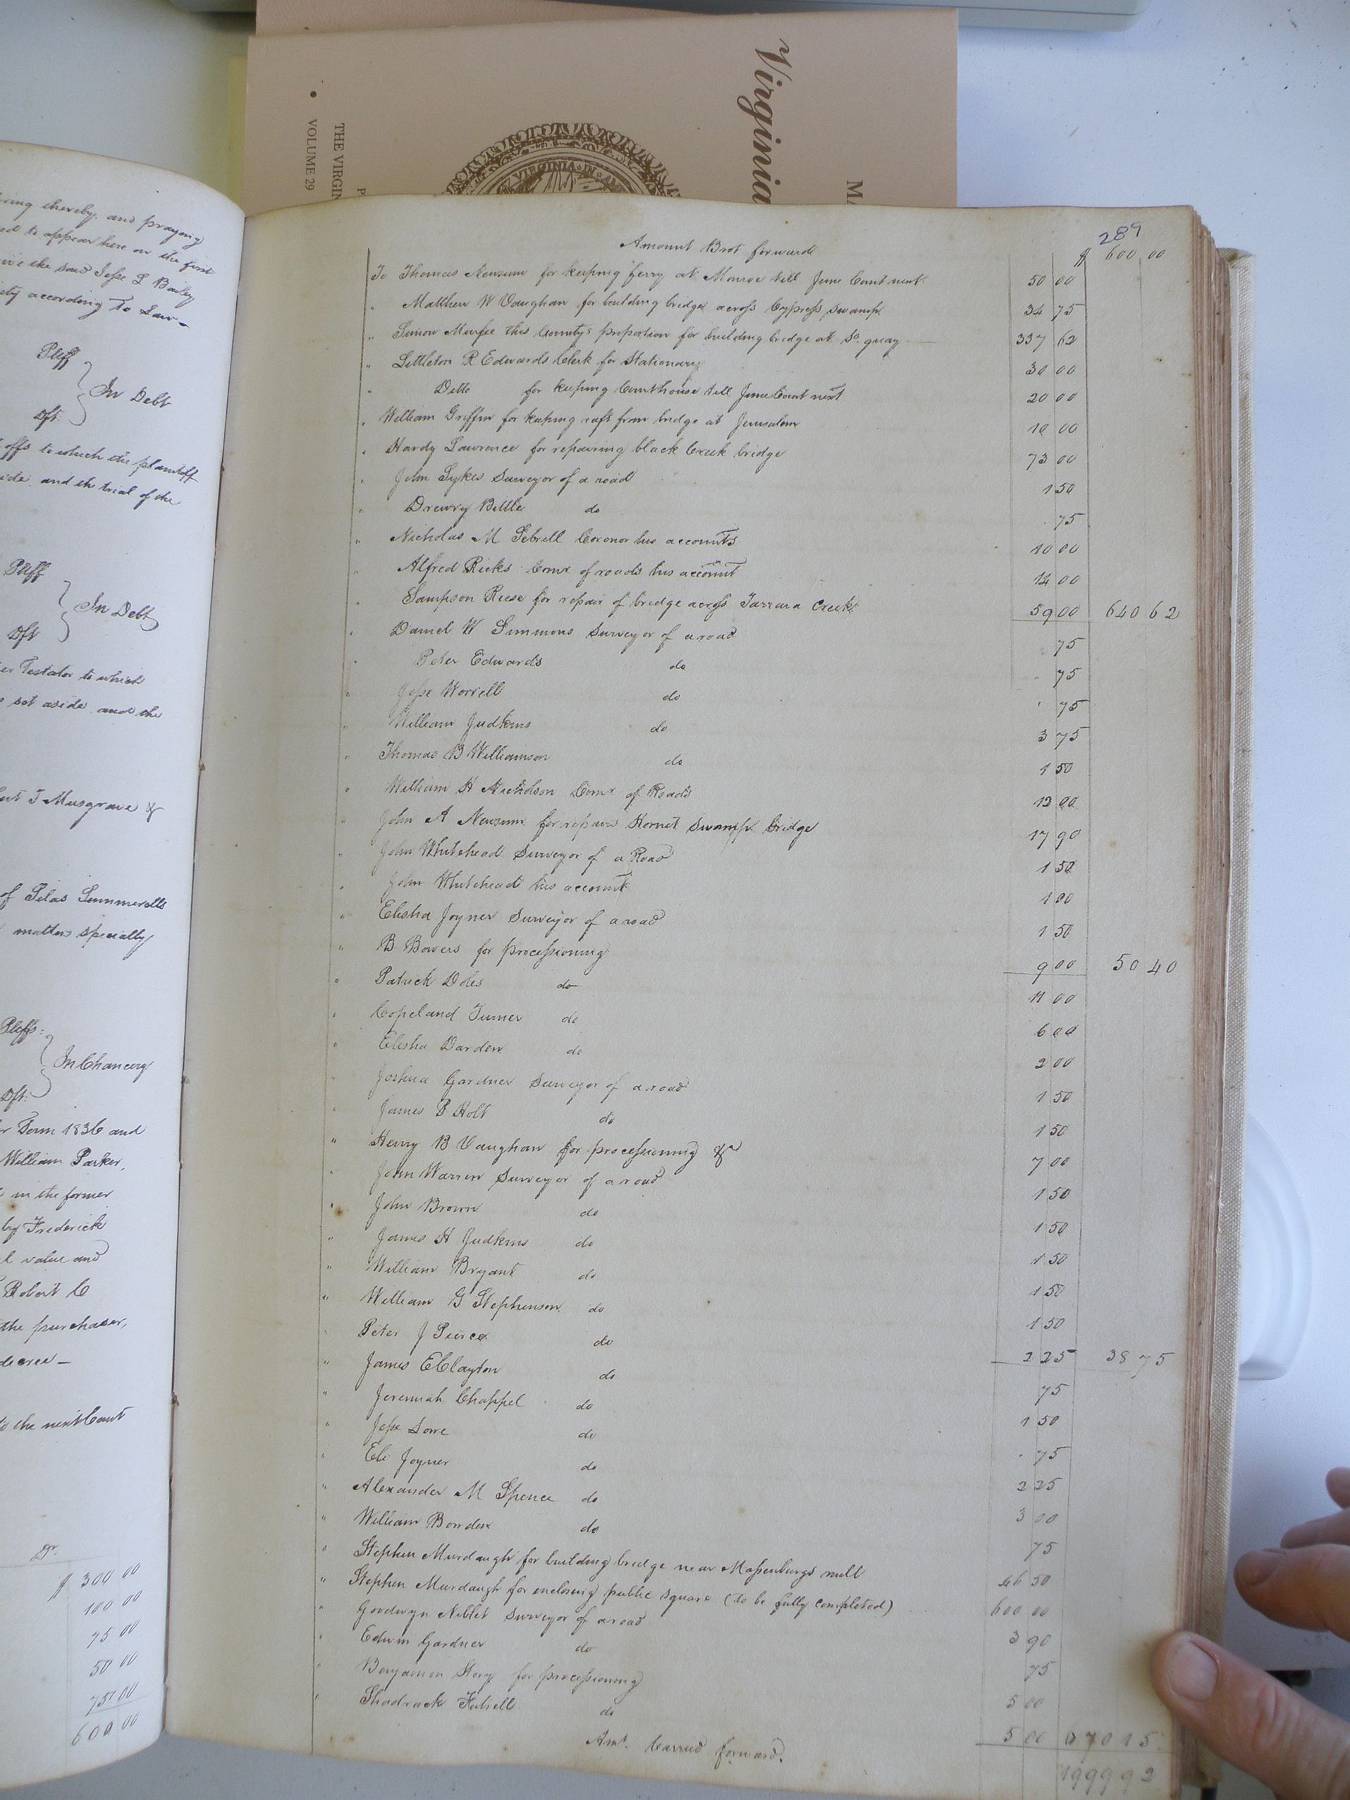 Virginia
THE VIRGIN
VOLUME 29
VIRGINIA
289
Amount Brot forward $ 600 00
To Thomas Newsum for keeping ferry at Monroe till June Court next 50 00
" Matthew W Vaughan for building bridge across Cypress Swamp 34 75
" Simon Murfee this County's proportion for building bridge at So. quay 337 62
" Littleton R Edwards Clerk for Stationary 30 00
" Ditto for keeping Courthouse till June Court next 20 00
" William Griffin for keeping raft from bridge at Jerusalem 10 00
" Hardy Lawrence for repairing black Creek bridge 73 00
" John Sykes Surveyor of a road 1 50
" Drewry Bittle do 75
" Nicholas M Sebrell Coroner his accounts 10 00
" Alfred Ricks Comr of roads his account 14 00
" Sampson Reese for repair of bridge across Tarrara Creek 59 00 640 62
Daniel W Simmons Surveyor of a road 75
" Peter Edwards do 75
" Jesse Worrell do 75
" William Judkins do 3 75
" Thomas B Williamson do 1 50
" William H Nicholson Comr of Roads 12 00
" John A Newsum for repairs Hornet Swamp bridge 17 90
" John Whitehead Surveyor of a Road 1 50
" John Whitehead his account 1 00
" Elisha Joyner Surveyor of a road 1 50
" B Bowers for processioning 9 00 50 40
" Patrick Doles do 11 00
" Copeland Turner do 6 00
" Elisha Darden do 2 00
" Joshua Gardner Surveyor of a road 1 50
" James B Holt do 1 50
" Henry B Vaughan for processioning &c 7 00
" John Warren Surveyor of a road 1 50
" John Brown do 1 50
" James H Judkins do 1 50
" William Bryant do 1 50
" William G Stephenson do 1 50
" Peter J Pierce do 2 25 38 75
" James E Clayton do 75
" Jeremiah Chappel do 1 50
" Jesse Lowe do 75
" Eli Joyner do 2 25
" Alexander M Spence do 3 00
" William Bowden do 75
" Stephen Murdaugh for building bridge near Massenburgs mill 46 50
" Stephen Murdaugh for enclosing public square (to be fully completed) 600 00
" Goodwyn Niblet Surveyor of a road 3 90
" Edwin Gardner do 75
" Benjamin Story for processioning 5 00
" Shadrack Futrell do 5 00 670 15
Amt. Carried forward. 1999 92
ring thereby, and praying
ed to appear here on the first
the said Jesse L Bailey
according to Law -
Pltff
In Debt
Dft.
offs to which the plaintiff
side and the trial of the
Pltff
In Debt
Dft
Testator to which
set aside and the
T Musgrave &
of Silas Summerells
matters specially
Pltffs:
In Chancery
Dft.
Term 1836 and
William Parker,
in the former
by Frederick
l value and
Robert C
the purchaser,
decree -
to the next Court
Dr.
$ 300 00
100 00
75 00
50 00
75 00
600 00